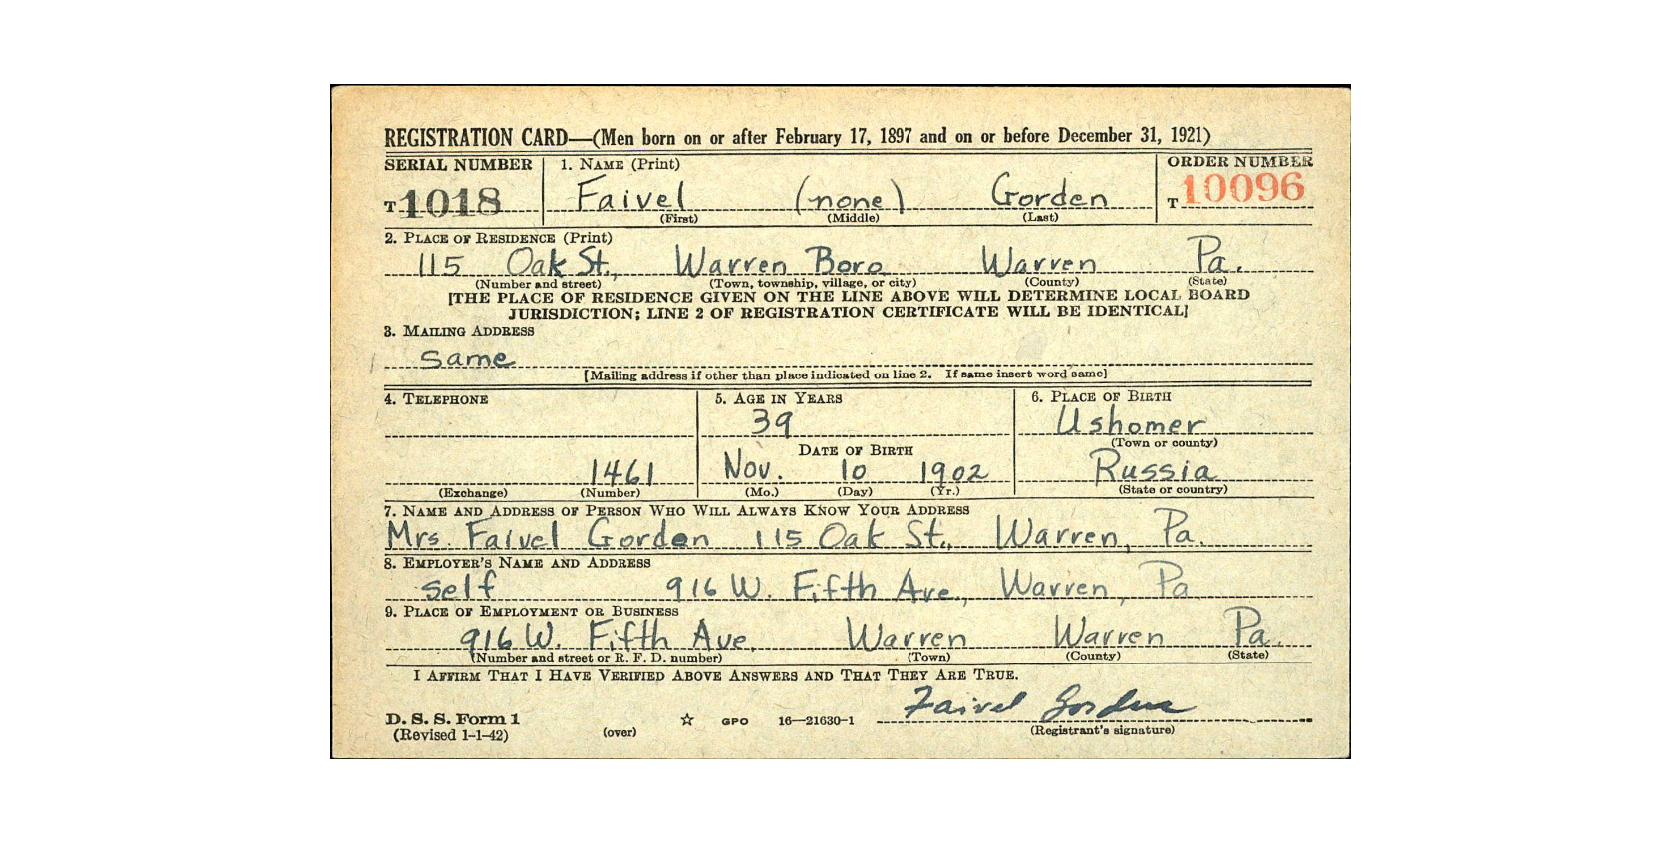 REGISTRATION CARD—(Men born on or after February 17, 1897 and on or before December 31, 1921)
SERIAL NUMBER 1. NAME (Print) ORDER NUMBER
T 1018 Faivel (none) Gorden T 10096
(First) (Middle) (Last)
2. PLACE OF RESIDENCE (Print)
115 Oak St., Warren Boro Warren Pa.
(Number and street) (Town, township, village, or city) (County) (State)
[THE PLACE OF RESIDENCE GIVEN ON THE LINE ABOVE WILL DETERMINE LOCAL BOARD
JURISDICTION; LINE 2 OF REGISTRATION CERTIFICATE WILL BE IDENTICAL]
3. MAILING ADDRESS
Same
[Mailing address if other than place indicated on line 2. If same insert word same]
4. TELEPHONE 5. AGE IN YEARS 6. PLACE OF BIRTH
39 Ushomer
(Town or county)
DATE OF BIRTH
1461 Nov. 10 1902 Russia
(Exchange) (Number) (Mo.) (Day) (Yr.) (State or country)
7. NAME AND ADDRESS OF PERSON WHO WILL ALWAYS KNOW YOUR ADDRESS
Mrs. Faivel Gorden 115 Oak St., Warren, Pa.
8. EMPLOYER'S NAME AND ADDRESS
Self 916 W. Fifth Ave., Warren, Pa
9. PLACE OF EMPLOYMENT OR BUSINESS
916 W. Fifth Ave. Warren Warren Pa.
(Number and street or R. F. D. number) (Town) (County) (State)
I AFFIRM THAT I HAVE VERIFIED ABOVE ANSWERS AND THAT THEY ARE TRUE.
Faivel Gorden
D. S. S. Form 1 ☆ GPO 16—21630-1
(Revised 1-1-42) (over) (Registrant's signature)